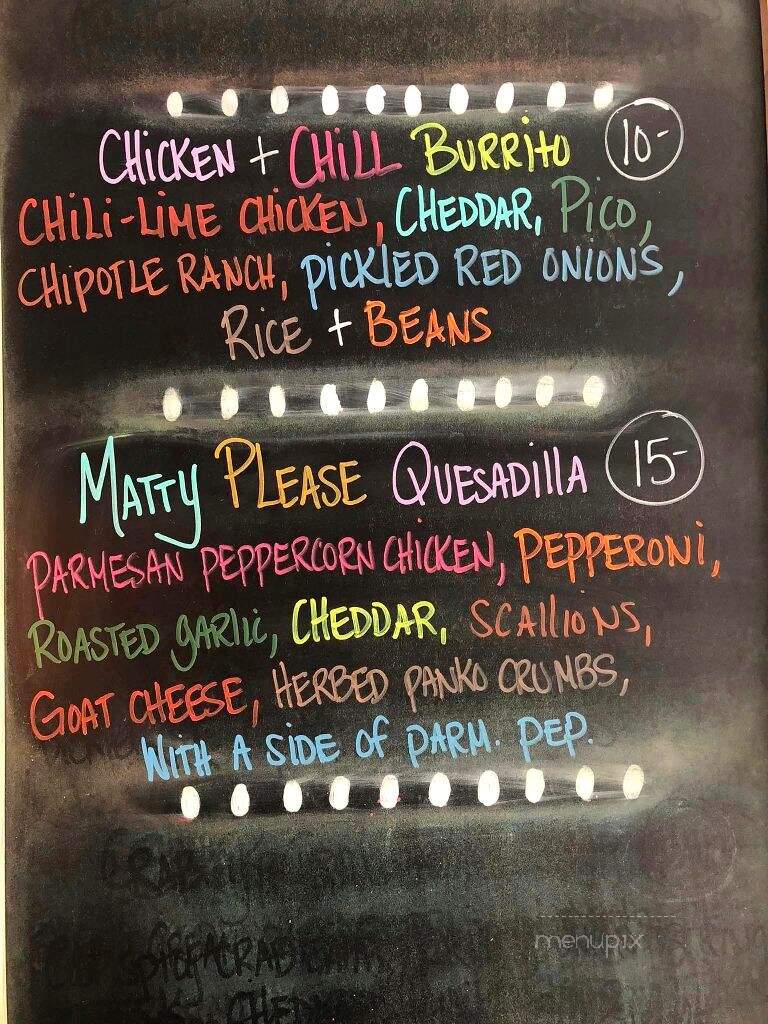 CHICKEN + CHILL BURRITO 10-
CHILI-LIME CHICKEN, CHEDDAR, PICO,
CHIPOTLE RANCH, PICKLED RED ONIONS,
RICE + BEANS
MATTY PLEASE QUESADILLA 15-
PARMESAN PEPPERCORN CHICKEN, PEPPERONI,
ROASTED GARLIC, CHEDDAR, SCALLIONS,
GOAT CHEESE, HERBED PANKO CRUMBS,
WITH A SIDE OF PARM. PEP.
CRAB
menupix